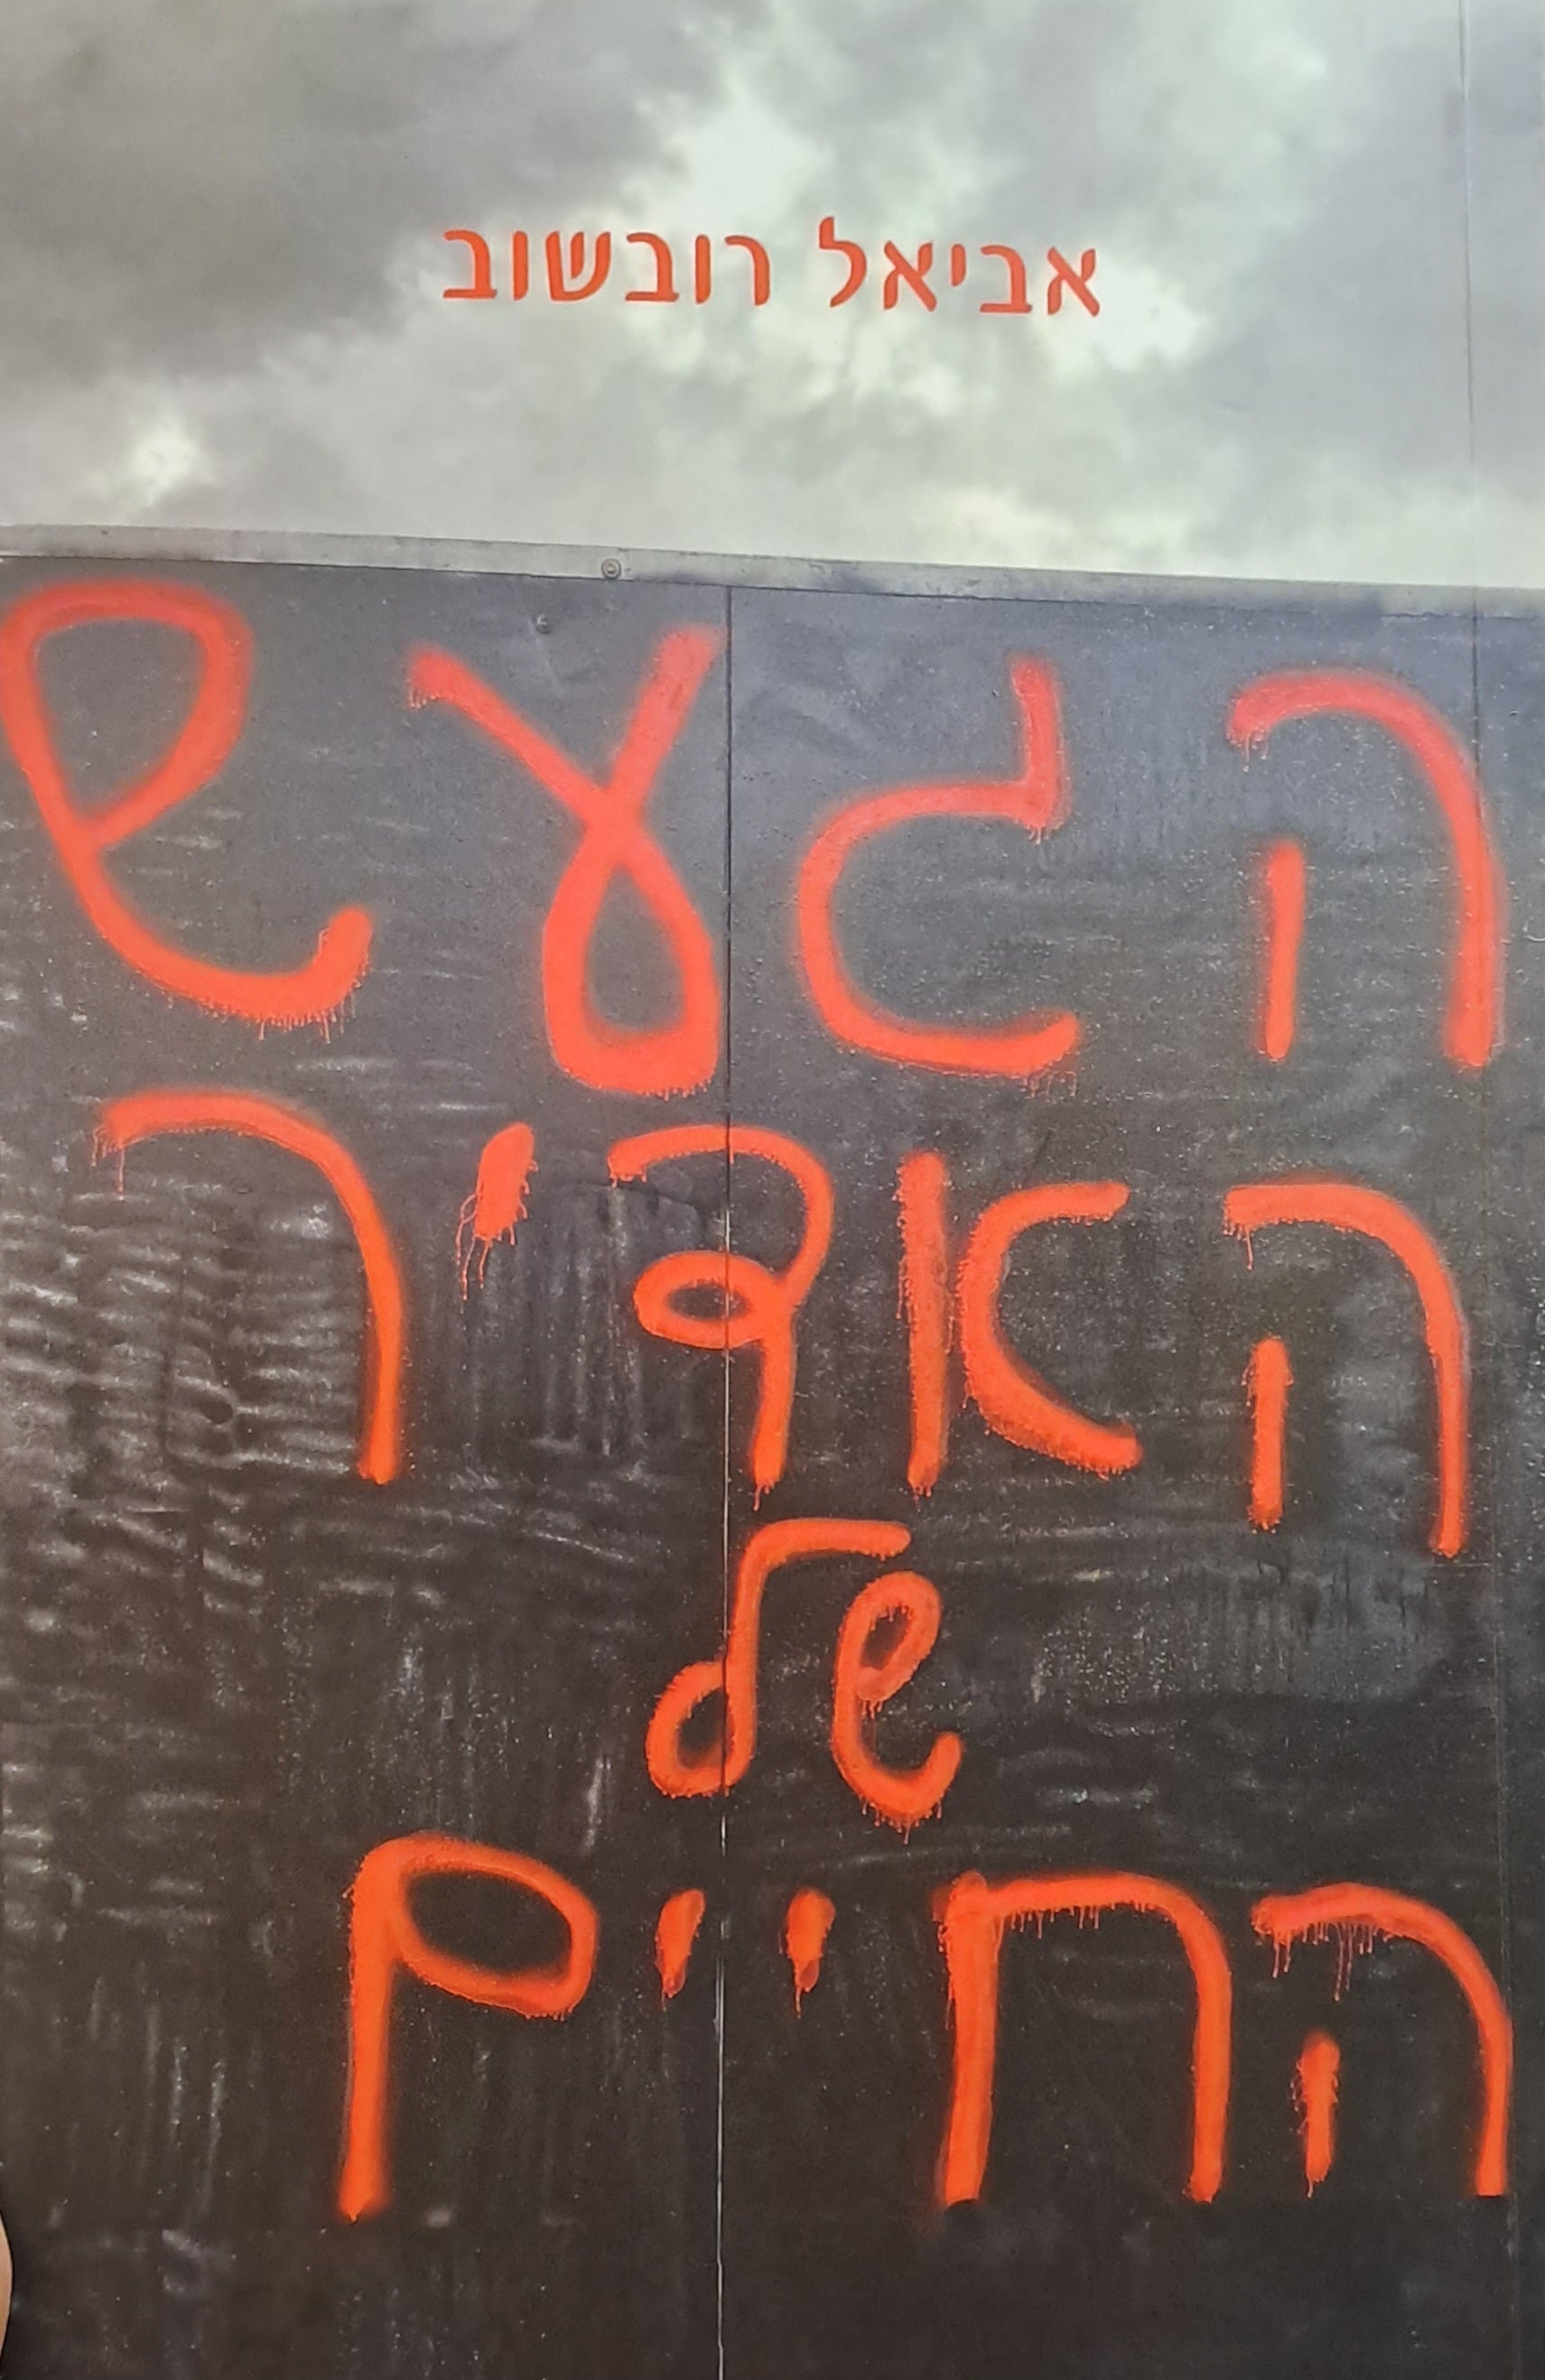 אביאל רובשוב
הגעש
האדיר
של
החיים